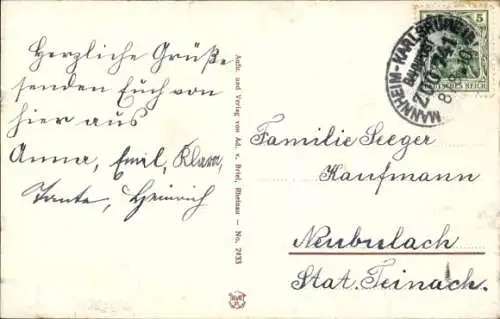 Herzliche Grüße
senden Euch von
hier aus
Anna, Emil, Klara,
Tante, Heinrich
Aufn. und Verlag von Ad. v. Briel, Rheinau — No. 7133
5
DEUTSCHES REICH
MANNHEIM-KARLSRUHE
BAHNPOST
ZUG 741
Familie Seeger
Kaufmann
Neubulach
Stat. Teinach.